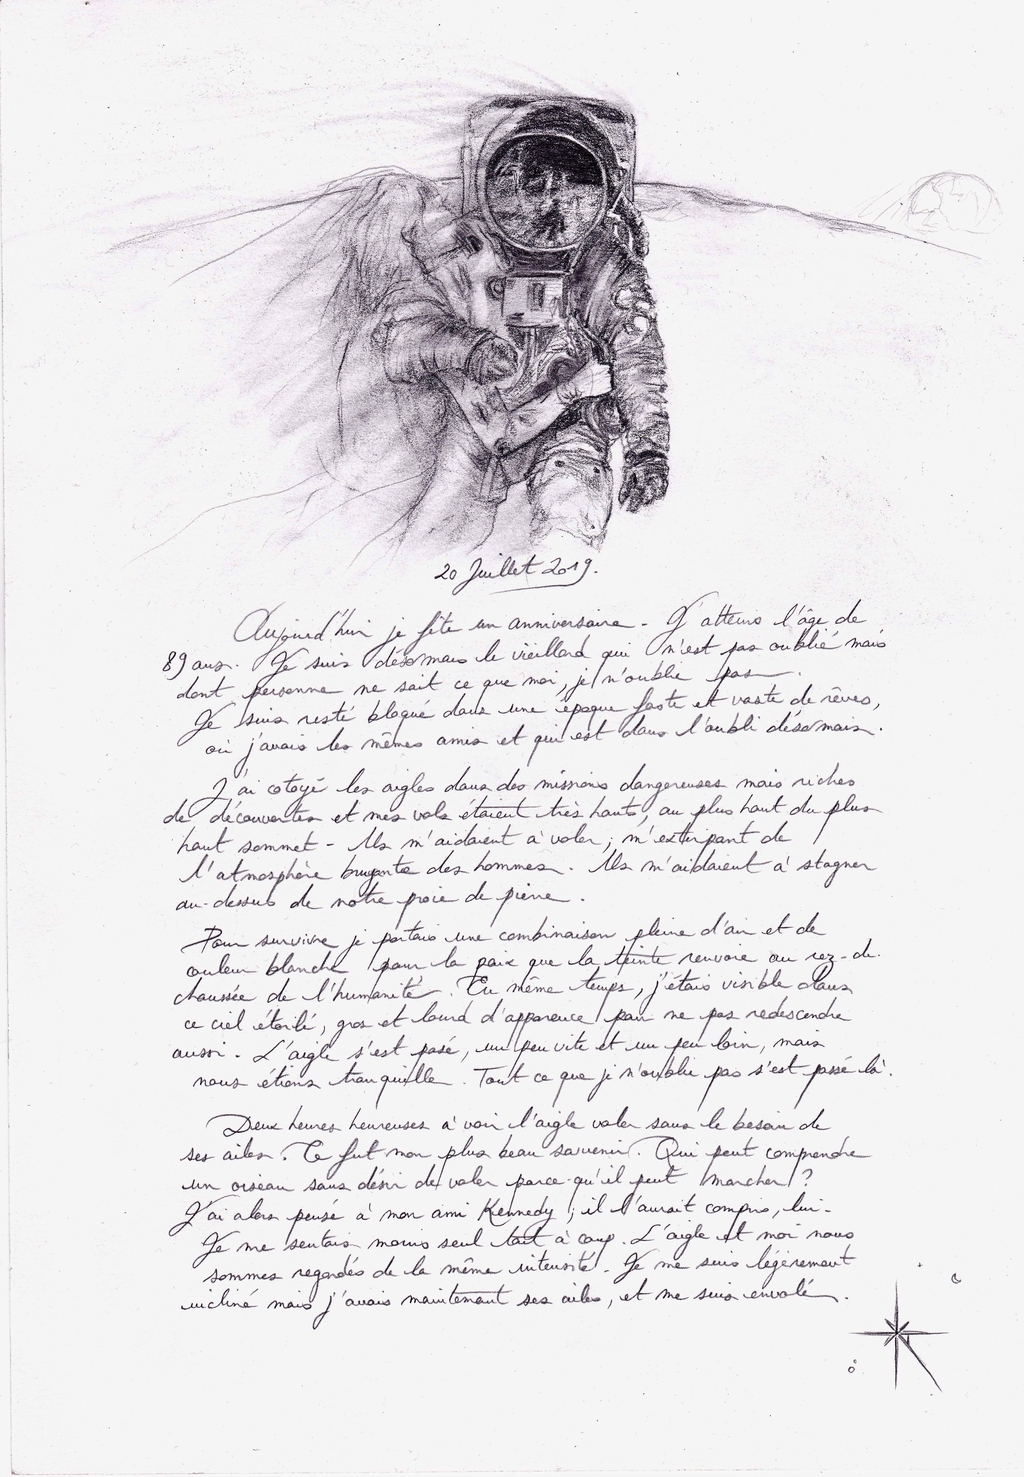 20 Juillet 2019.
Aujourd'hui je fête un anniversaire - J'atteins l'âge de
89 ans. Je suis désormais le vieillard qui n'est pas oublié mais
dont personne ne sait ce que moi, je n'oublie pas.
Je suis resté bloqué dans une époque faste et vaste de rêves,
où j'avais les mêmes amis et qui est dans l'oubli désormais.
J'ai cotoyé les aigles dans des missions dangereuses mais riches
de découvertes et mes vols étaient très hauts, au plus haut du plus
haut sommet - Ils m'aidaient à voler, m'extirpant de
l'atmosphère bruyante des hommes. Ils m'aidaient à stagner
au-dessus de notre proie de pierre.
Pour survivre je portais une combinaison pleine d'air et de
couleur blanche pour la paix que la teinte renvoie au rez-de-
chaussée de l'humanité. En même temps, j'étais visible dans
ce ciel étoilé, gros et lourd d'apparence pour ne pas redescendre
aussi. L'aigle s'est posé, un peu vite et un peu loin, mais
nous étions tranquille. Tout ce que je n'oublie pas s'est passé là.
Deux heures heureuses à voir l'aigle voler sans le besoin de
ses ailes. Ce fut mon plus beau souvenir. Qui peut comprendre
un oiseau sans désir de voler parce-qu'il peut marcher ?
J'ai alors pensé à mon ami Kennedy ; il l'aurait compris, lui.
Je me sentais moins seul tout à coup. L'aigle et moi nous
sommes regardés de la même intensité. Je me suis légèrement
incliné mais j'avais maintenant ses ailes, et me suis envolé.